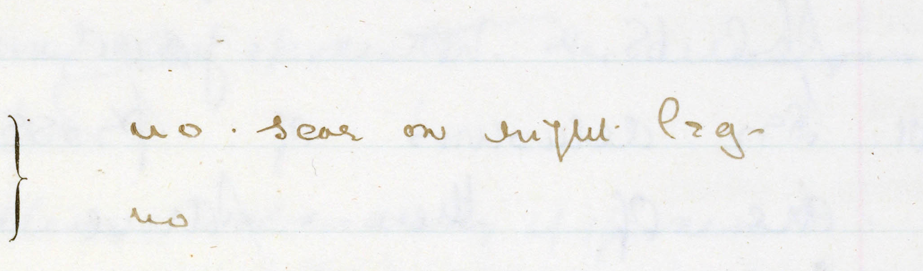 no. scar on right leg-
no